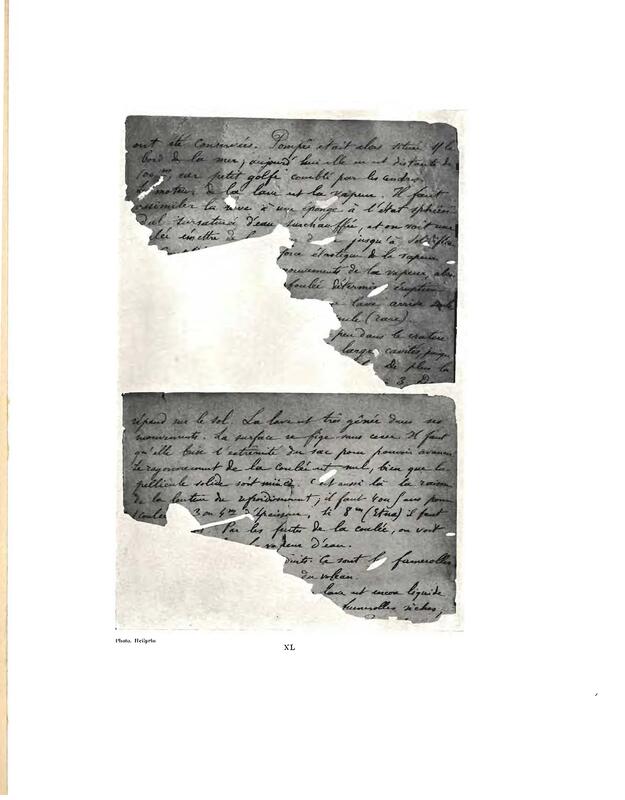 ont été conservées. Pompéi était alors située sur le
bord de la mer; aujourd'hui elle en est distante de
par petit golfe comblé par les cendres
moteur de la lave est la vapeur. Il faut
assimiler la lave à une éponge à l'état sphéroï
dal sursaturée d'eau surchauffée, et on voit une
émettre de la jusqu'à solidifica
force élastique de la vapeur
mouvements de la vapeur,
coulée détermine éruption
lave arrive
(rare).
peu dans le cratère
large cavités,
De plus la
répand sur le sol. La lave est très gênée dans ses
mouvements. La surface se fige sans cesse. Il faut
qu'elle brise l'extrémité du sac pour pouvoir avancer
Le rayonnement de la coulée est nul, bien que la
pellicule solide soit mince. C'est aussi là la raison
de la lenteur du refroidissement; il faut 4 ou 5 ans pour
3 ou 4m d'épaisseur, si 8m (Etna) il faut
Par les fentes de la coulée, on voit
la vapeur d'eau.
Ce sont les fumerolles
du volcan.
lave est encore liquide
fumerolles sèches,
Photo. Heilprin
XL